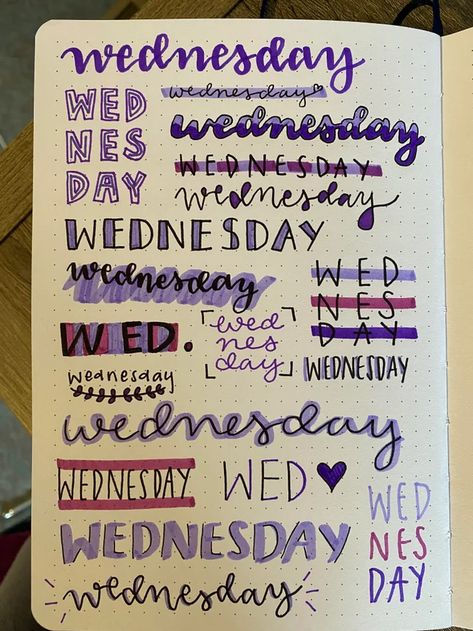 wednesday
WED
NES
DAY
wednesday
wednesday
WEDNESDAY
wednesday
WEDNESDAY
wednesday
WED
NES
DAY
WED.
wed
nes
day
WEDNESDAY
wednesday
wednesday
WEDNESDAY
WED
WED
NES
DAY
WEDNESDAY
wednesday